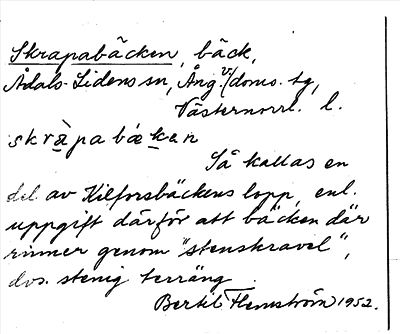 Skrapabäcken, bäck,
Ådals-Lidens sn, Ång. v. doms. tg,
Västernorrl. l.
skràpabækən
Så kallas en
del av Kilforsbäckens lopp, enl.
uppgift därför att bäcken där
rinner genom "stenskravel",
dvs. stenig terräng
Bertil Flemström 1952.